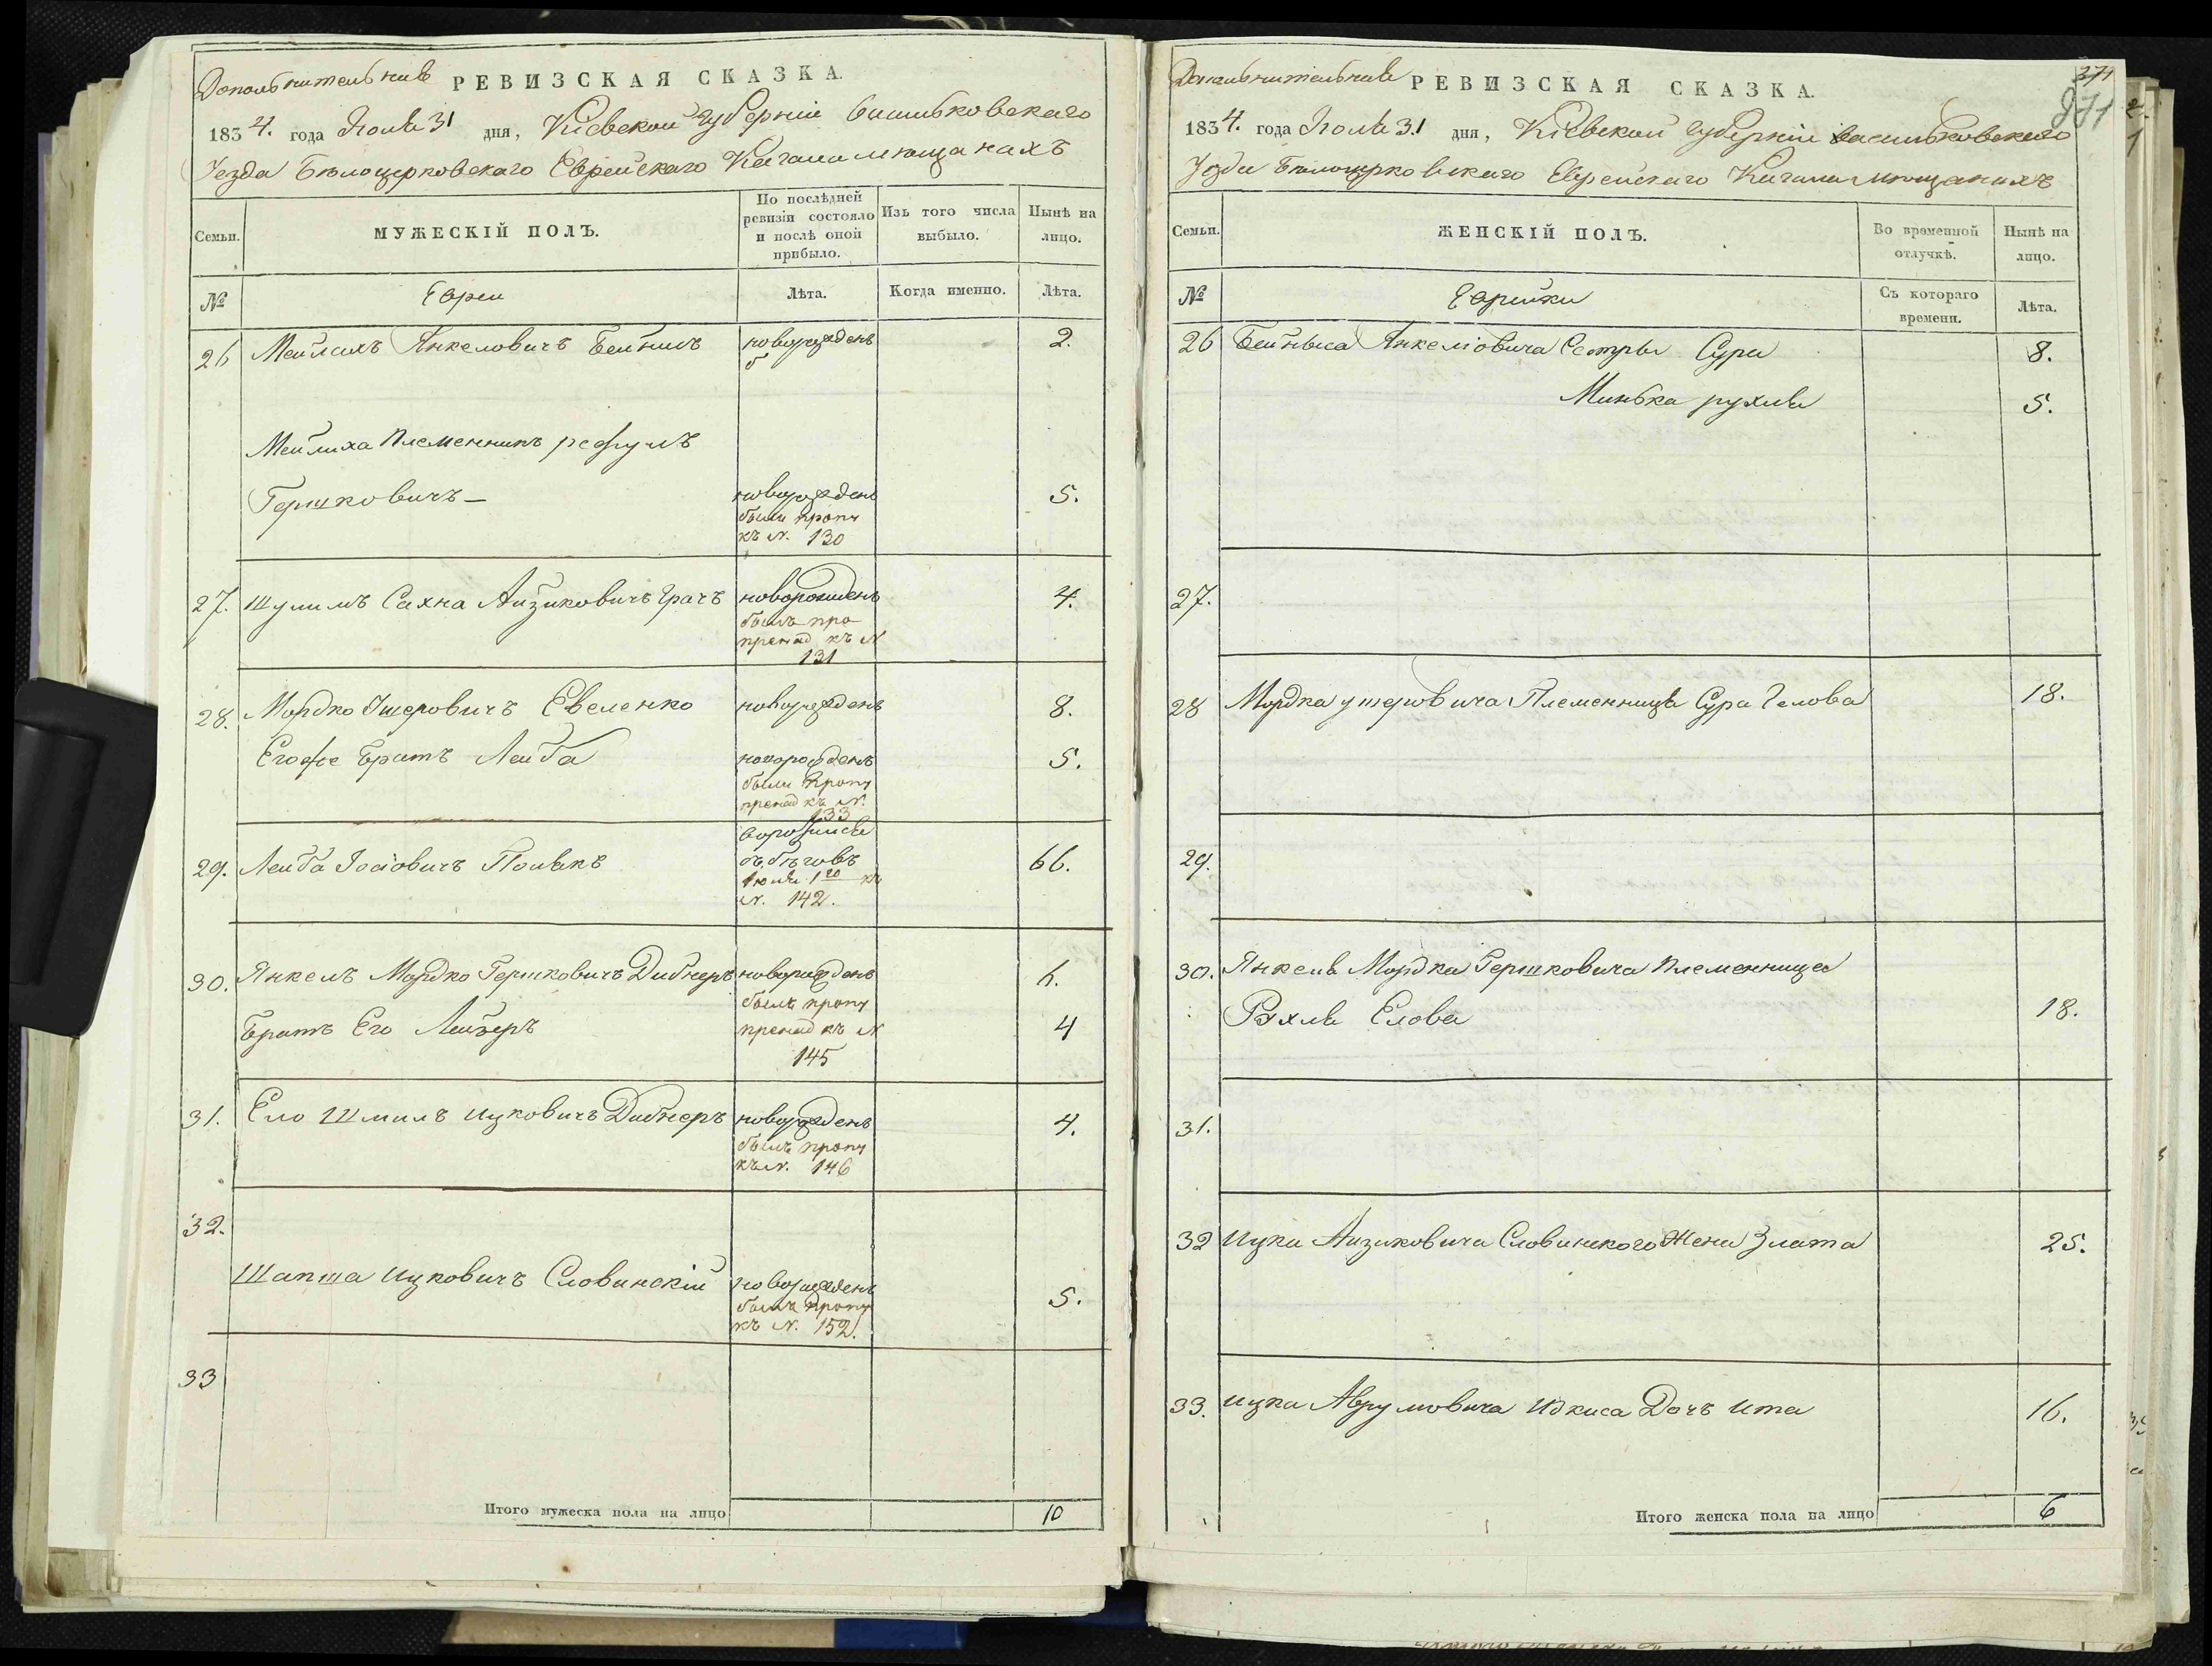 Дополнительная РЕВИЗСКАЯ СКАЗКА.
1834. года Июля 31 дня, Киевской губернии Васильковского
Уезда Белоцерковского Еврейского Кагала мещанах
Семьи.
МУЖЕСКІЙ ПОЛЪ.
По послѣдней ревизіи состояло и послѣ оной прибыло.
Изъ того числа выбыло.
Нынѣ на лицо.
№
Евреи
Лѣта.
Когда именно.
Лѣта.
26 Мейлахъ Янкеловичъ Бейнишъ новорожденъ 2.
Мейлиха Племенникъ
Гершковичъ новорожденъ 5.
были пропу
къ N. 130
27. Шулимъ Сахна Айзиковичъ Грачъ новорожденъ 4.
былъ про
къ N
131
28. Мордко Ушеровичъ Евеленко новорожденъ 8.
Егоже Братъ Лейба новорожденъ 5.
были пропу
къ N.
133
29. Лейба Іосіовичъ Полякъ 66.
съ бѣговъ
N. 142.
30. Янкель Мордко Гершковичъ Дибнеръ новорожденъ
былъ пропу
Братъ Его Лейзеръ къ N 4
145
31. Ело Шмиль Ицковичъ Дибнеръ новорожденъ 4.
былъ пропу
къ N. 146
32.
Шапша Ицковичъ Словинскій новорожденъ 5.
былъ пропу
къ N. 152.
33
Итого мужеска пола на лицо 10
371
271
Дополнительная РЕВИЗСКАЯ СКАЗКА.
1834. года Июля 31 дня, Кіевской губерніи Васильковского
Уезда Белоцерковского Еврейского Кагала мещанахъ
Семьи.
ЖЕНСКІЙ ПОЛЪ.
Во временной отлучкѣ.
Нынѣ на лицо.
№
Еврейки
Съ котораго времени.
Лѣта.
26 Бейныса Янкеліовича Сестры Сура 8.
Минька рухля 5.
27.
28 Мордка ушеровича Племенница Сура Гелова 18.
29.
30. Янкеля Мордка Гершковича племенница
Рухля Елова 18.
31.
32 Ицка Айзиковича Словинского Жена Злата 25.
33. Ицка Аврумовича Идкиса Дочъ Ита 16.
Итого женска пола на лицо 6